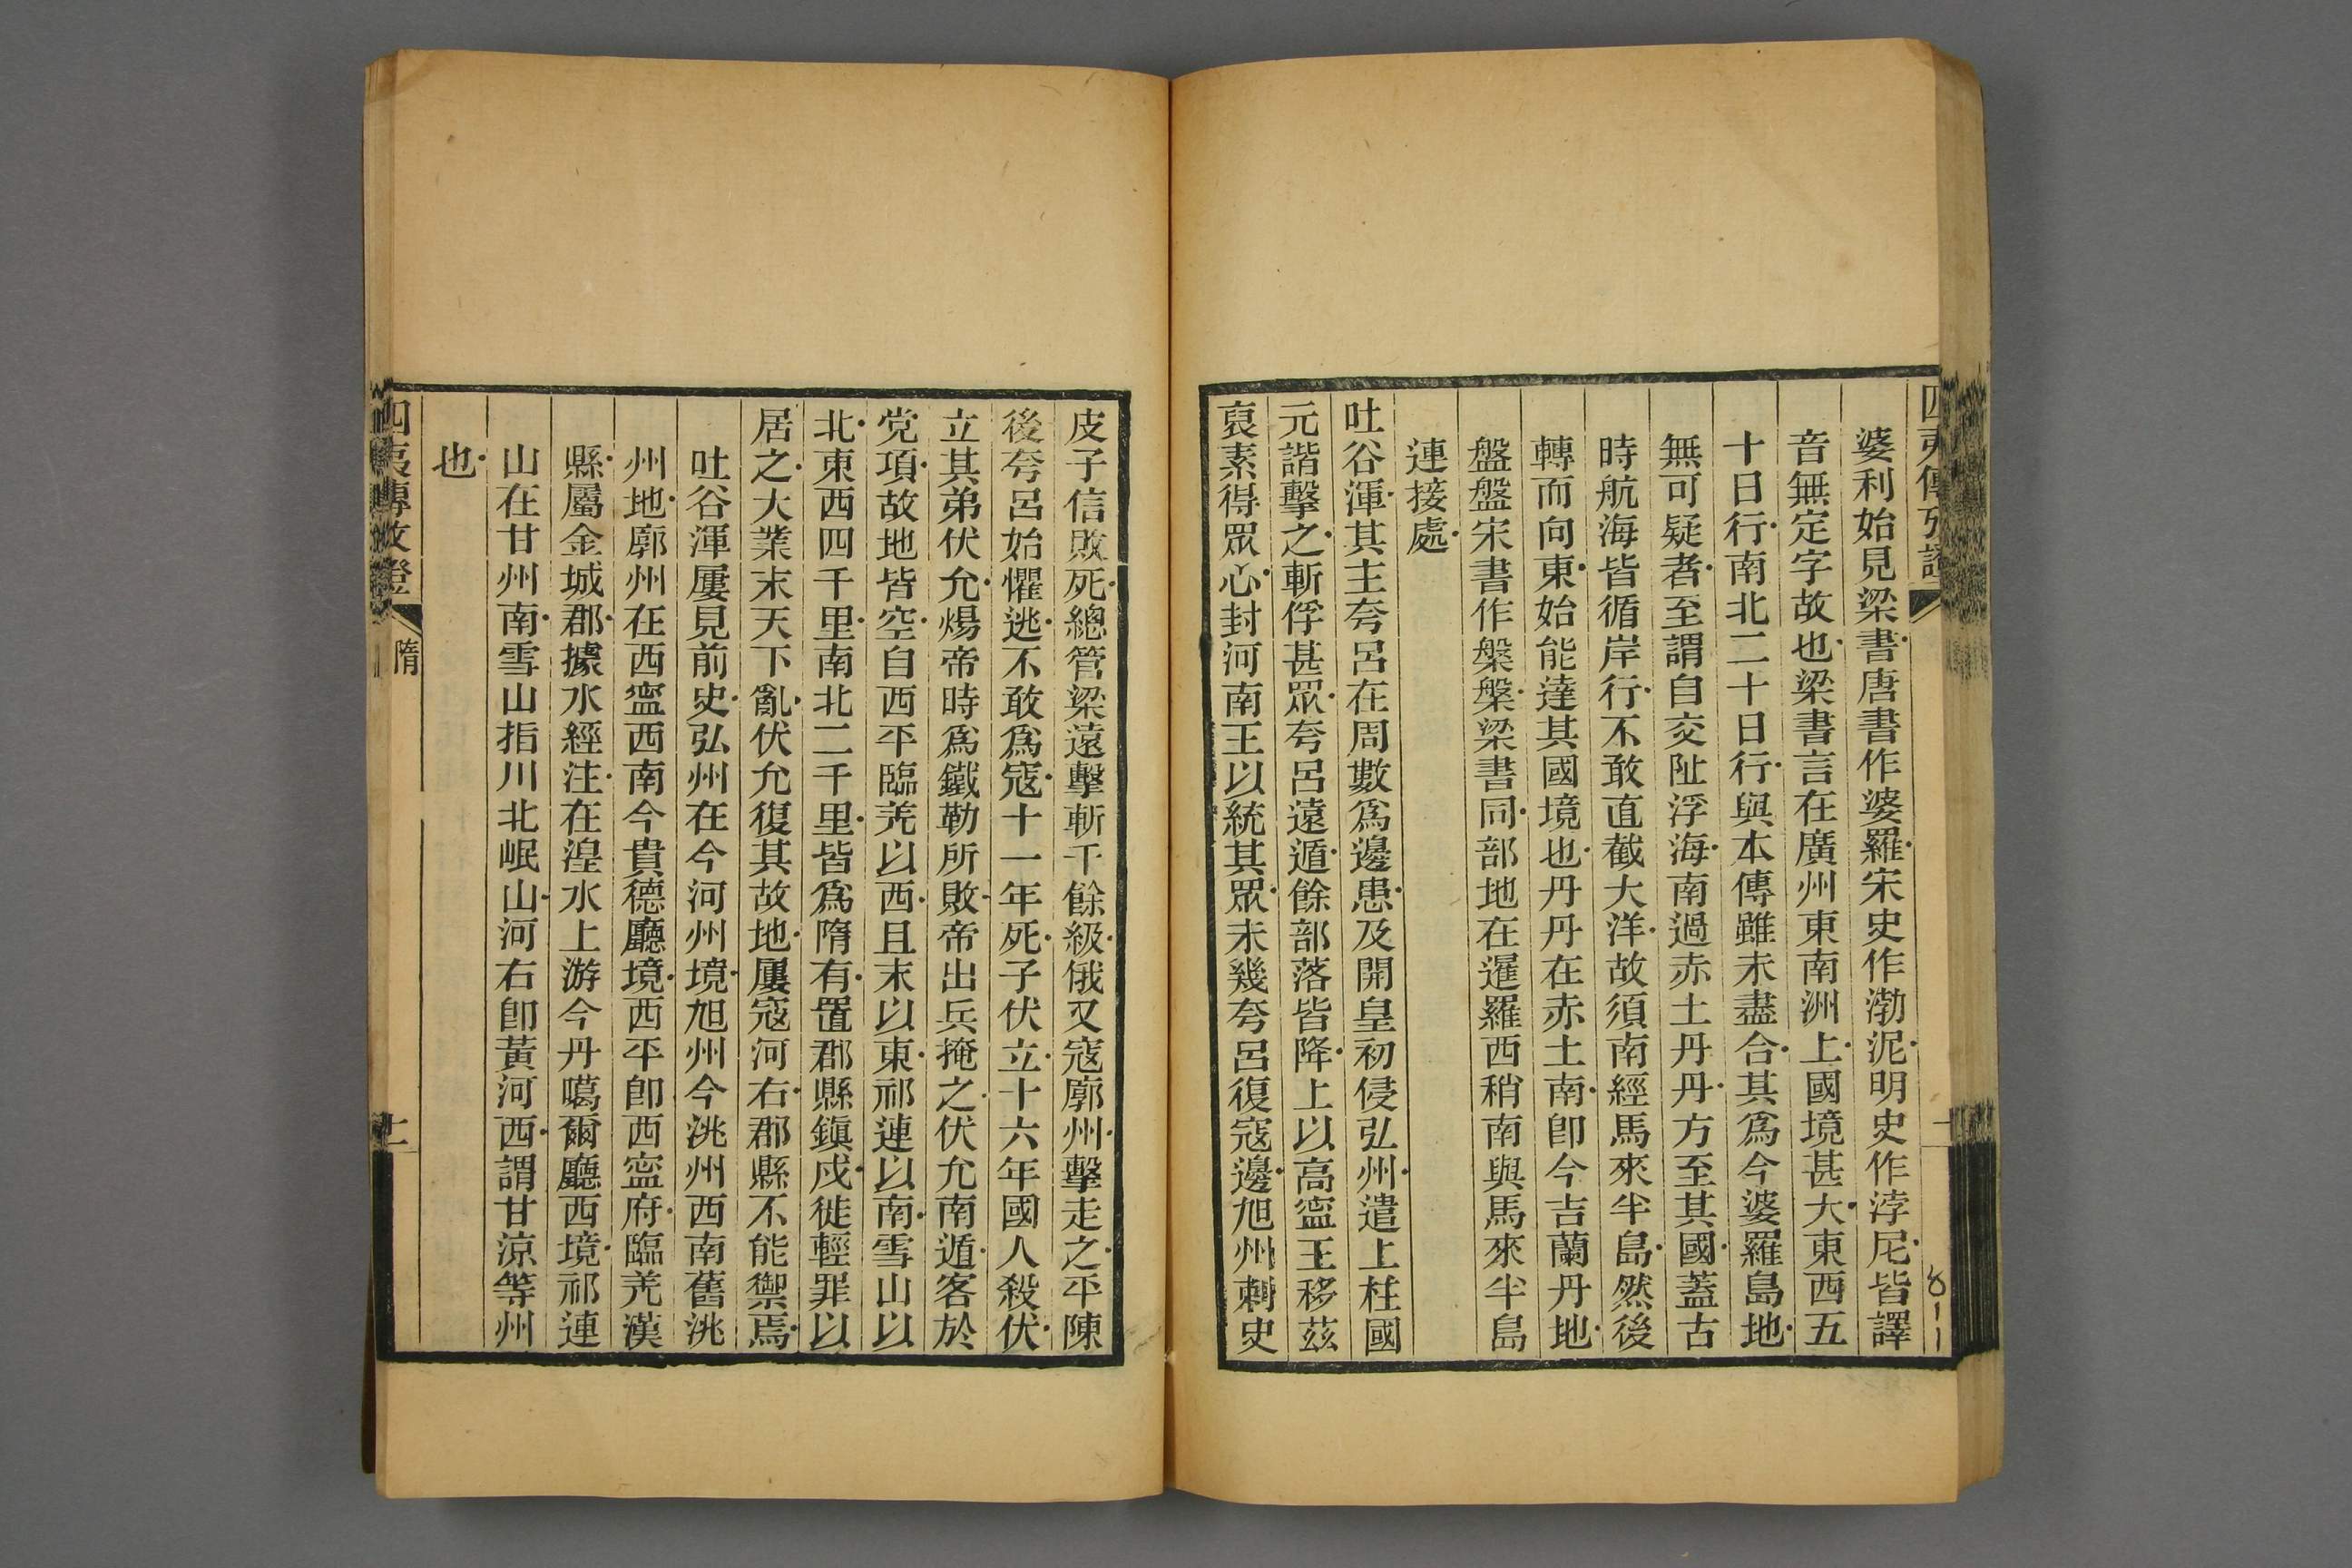 婆利始見梁書唐書作婆羅宋史作渤泥明史作浡尼皆譯
音無定字故也梁書言在廣州東南洲上國境甚大東西五
十日行南北二十日行與本傳雖未盡合其爲今婆羅島地
無可疑者至謂自交阯浮海南過赤土丹丹方至其國蓋古
時航海皆循岸行不敢直截大洋故須南經馬來半島然後
轉而向東始能達其國境也丹丹在赤土南卽今吉蘭丹地
盤盤宋書作槃槃梁書同部地在暹羅西稍南與馬來半島
連接處
吐谷渾其主夸呂在周數爲邊患及開皇初侵弘州遣上柱國
元諧擊之斬俘甚眾夸呂遠遁餘部落皆降上以高寍王移茲
裒素得眾心封河南王以統其眾未幾夸呂復寇邊旭州刺史
皮子信敗死總管梁遠擊斬千餘級俄又寇廓州擊走之平陳
後夸呂始懼逃不敢爲寇十一年死子伏立十六年國人殺伏
立其弟伏允煬帝時爲鐵勒所敗帝出兵掩之伏允南遁客於
党項故地皆空自西平臨羌以西且末以東祁連以南雪山以
北東西四千里南北二千里皆爲隋有置郡縣鎭戍徙輕罪以
居之大業末天下亂伏允復其故地屢寇河右郡縣不能禦焉
吐谷渾屢見前史弘州在今河州境旭州今洮州西南舊洮
州地廓州在西寍西南今貴德廳境西平卽西寍府臨羌漢
縣屬金城郡據水經注在湟水上游今丹噶爾廳西境祁連
山在甘州南雪山指川北岷山河右卽黃河西謂甘涼等州
也
四夷傳攷證
隋
十一
8-11